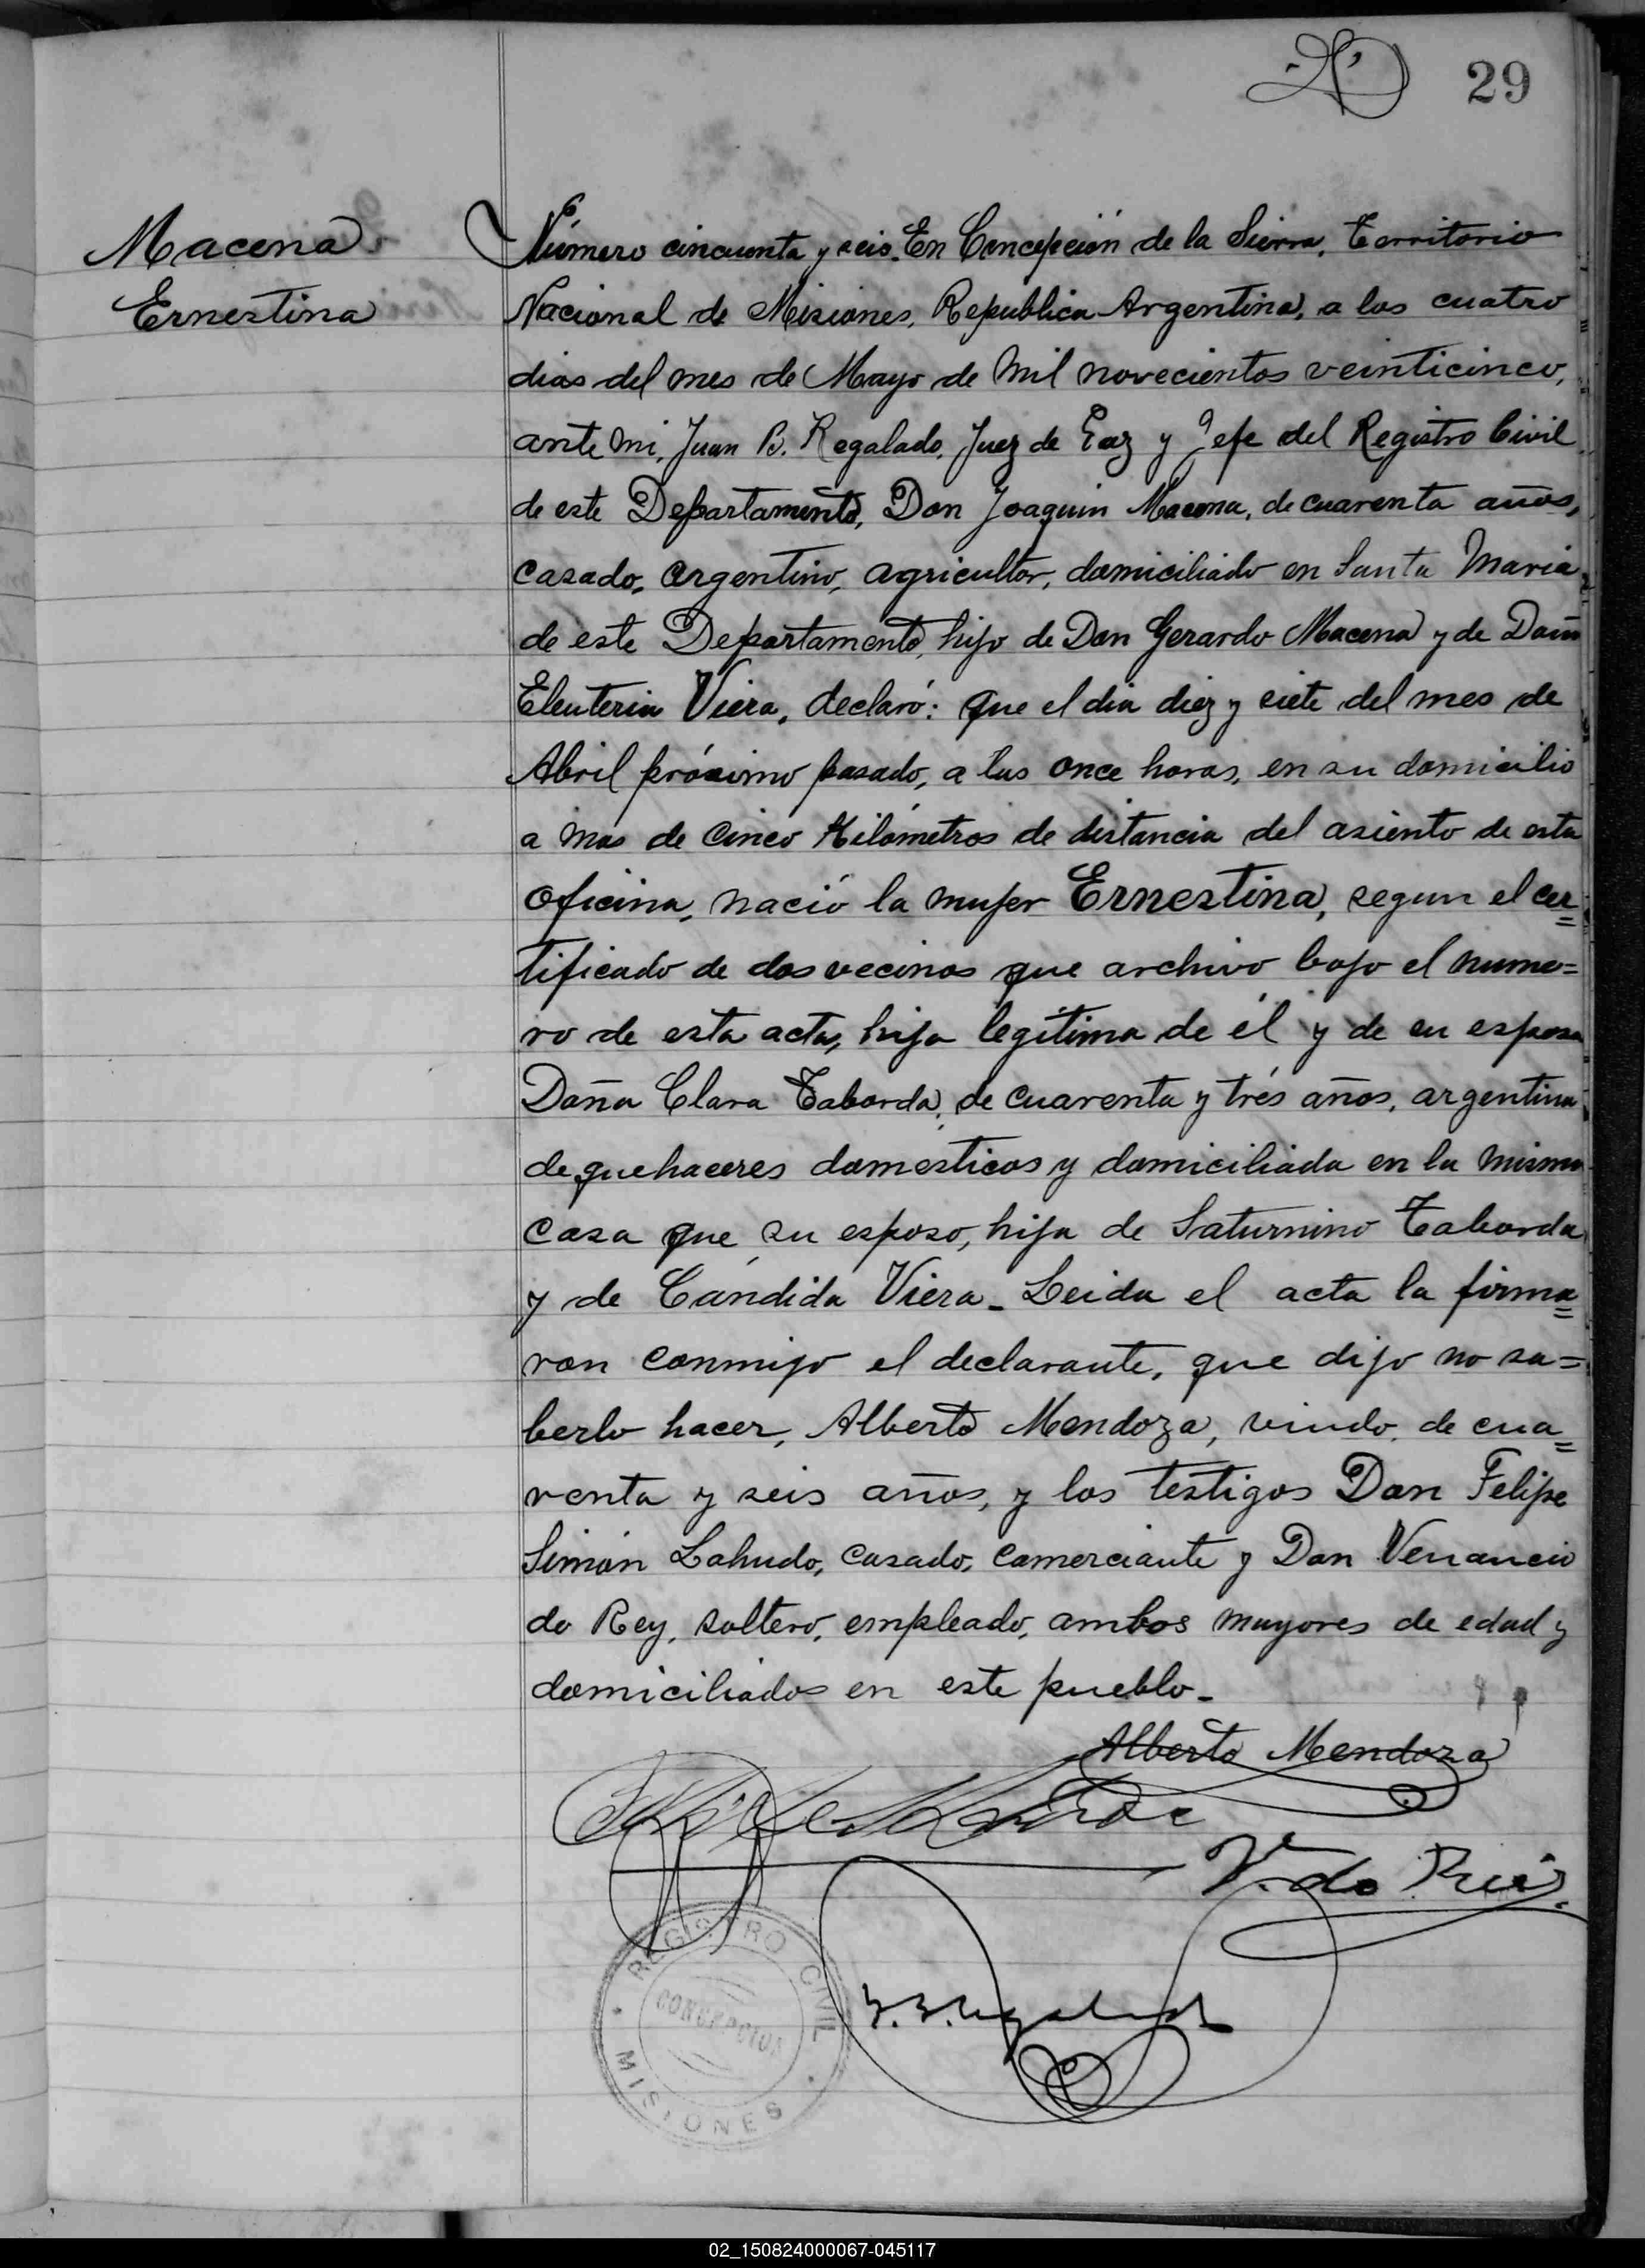 29
Macena
Ernestina
Número cincuenta y seis. En Concepción de la Sierra, Territorio
Nacional de Misiones, Republica Argentina, a los cuatro
dias del mes de Mayo de mil novecientos veinticinco,
ante mi, Juan B. Regalado, Juez de Paz y Jefe del Registro Civil
de este Departamento, Don Joaquin Macena, de cuarenta años,
casado, argentino, agricultor, domiciliado en Santa Maria
de este Departamento, hijo de Don Gerardo Macena y de Doña
Eleuteria Viera, declaró: que el dia diez y siete del mes de
Abril próximo pasado, a las once horas, en su domicilio
a mas de cinco Kilómetros de distancia del asiento de esta
oficina, nació la mujer Ernestina, segun el cer=
tificado de dos vecinos que archivo bajo el nume=
ro de esta acta, hija legítima de él y de su esposa
Doña Clara Taborda, de cuarenta y trés años, argentina
de quehaceres domésticos y domiciliada en la misma
casa que su esposo, hija de Saturnino Taborda
y de Cándida Viera. Leida el acta la firma=
ron conmigo el declarante, que dijo no sa=
berlo hacer, Alberto Mendoza, viudo, de cua=
renta y seis años, y los testigos Don Felipe
Simón Lahudo, casado, comerciante y Don Venancio
do Rey, soltero, empleado, ambos mayores de edad y
domiciliados en este pueblo.
Alberto Mendoza
V. do Rei
J. B. Regalado
REGISTRO CIVIL
CONCEPCION
MISIONES
02_150824000067-045117